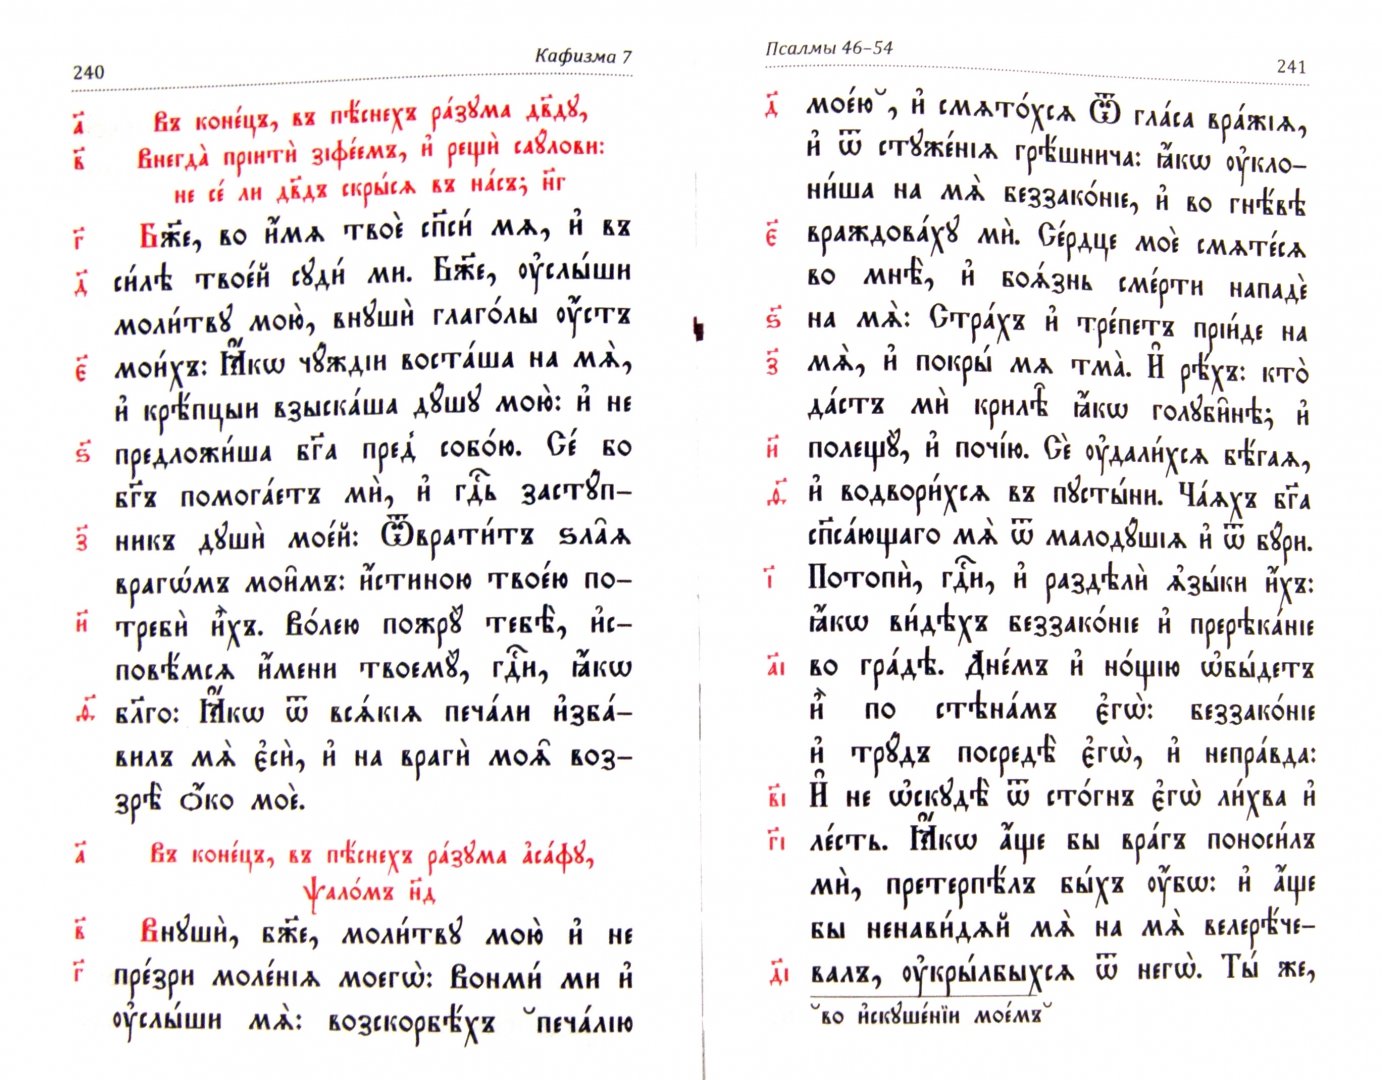 240
Кафизма 7
а҃ Въ коне́цъ, въ пѣ́снехъ ра́зума дв҃дꙋ,
в҃ Внегда̀ прїитѝ зїфе́емъ, и҆ рещѝ саꙋлови:
не се́ ли дв҃дъ скры́сѧ въ на́съ; н҃г
г҃ Бж҃е, во и҆́мѧ твоѐ сп҃си́ мѧ, и҆ въ
д҃ си́лѣ твое́й сꙋди́ ми. Бж҃е, ᲂу҆слы́ши
моли́твꙋ мою̀, внꙋшѝ глаго́лы ᲂу҆́стъ
є҃ мои́хъ: Ꙗ҆́кѡ чꙋ́ждїи воста́ша на мѧ̀,
и҆ крѣ́пцыи взыска́ша дꙋ́шꙋ мою̀: и҆ не
ѕ҃ предложи́ша бг҃а пред̾ собо́ю. Се́ бо
бг҃ъ помога́етъ мѝ, и҆ гдⷭ҇ь застꙋ́п–
з҃ никъ дꙋшѝ мое́й: Ѿврати́тъ ѕла̑ѧ
врагѡ́мъ мои̑мъ: и҆́стиною твое́ю по–
и҃ требѝ и҆̀хъ. Во́лею пожрꙋ̀ тебѣ̀, и҆с–
повѣ́мсѧ и҆́мени твоемꙋ̀, гдⷭ҇и, ꙗ҆́кѡ
ѳ҃ бл҃го: Ꙗ҆́кѡ ѿ всѧ́кїѧ печа́ли и҆зба́–
вилъ мѧ̀ є҆сѝ, и҆ на врагѝ моѧ̑ воз–
зрѣ̀ ѻ҆́ко моѐ.
а҃ Въ коне́цъ, въ пѣ́снехъ ра́зꙋма а҆са́фꙋ,
ѱало́мъ н҃д
в҃ Внꙋшѝ, бж҃е, моли́твꙋ мою̀ и҆ не
г҃ пре́зри моле́нїѧ моегѡ̀: Вонми́ ми и҆
ᲂу҆слы́ши мѧ̀: возскорбѣ́хъ ˇпеча́лїю
Псалмы 46–54
241
д҃ мое́юˇ, и҆ смѧто́хсѧ Ѿ гла́са вра́жїѧ,
и҆ ѿ стꙋже́нїѧ грѣ́шнича: ꙗ҆́кѡ ᲂу҆кло–
ни́ша на мѧ̀ беззако́нїе, и҆ во гнѣ́вѣ
є҃ враждова́хꙋ мѝ. Се́рдце моѐ смѧте́сѧ
во мнѣ̀, и҆ боѧ́знь сме́рти нападѐ
ѕ҃ на мѧ̀: Стра́хъ и҆ тре́петъ прїи́де на
з҃ мѧ̀, и҆ покры́ мѧ тма̀. И҆ рѣ́хъ: кто̀
да́стъ мѝ крилѣ̑ ꙗ҆́кѡ голꙋби̑нѣ; и҆
и҃ полещꙋ̀, и҆ почі́ю. Сѐ ᲂу҆дали́хсѧ бѣ́гаѧ,
ѳ҃ и҆ водвори́хсѧ въ пꙋсты́ни. Ча́ѧхъ бг҃а
сп҃са́ющаго мѧ̀ ѿ малодꙋ́шїѧ и҆ ѿ бꙋ́ри.
і҃ Потопѝ, гдⷭ҇и, и҆ раздѣлѝ ѧ҆зы́ки и҆́хъ:
ꙗ҆́кѡ ви́дѣхъ беззако́нїе и҆ пререка́нїе
а҃і во гра́дѣ. Дне́мъ и҆ но́щїю ѡ҆бы́детъ
и҆̀ по стѣна́мъ є҆гѡ̀: беззако́нїе
и҆ трꙋ́дъ посредѣ̀ є҆гѡ̀, и҆ непра́вда:
в҃і И҆ не ѡ҆скꙋдѣ̀ ѿ сто́гнъ є҆гѡ̀ ли́хва и҆
г҃і ле́сть. Ꙗ҆́кѡ а҆́ще бы вра́гъ поноси́лъ
мѝ, претерпѣ́лъ бы́хъ ᲂу҆́бѡ: и҆ а҆́ще
бы ненави́дѧй мѧ̀ на мѧ̀ велерѣ́че–
д҃і валъ, ᲂу҆кры́лбыхсѧ ѿ негѡ̀. Ты́ же,
ˇво и҆скꙋше́нїи мое́мъˇ